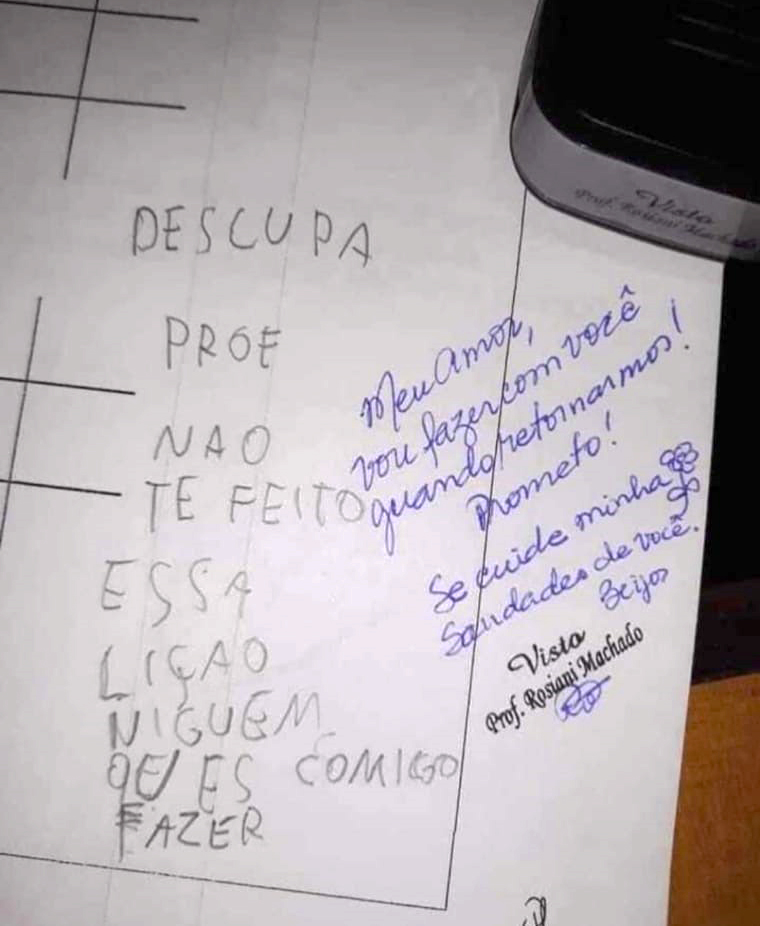 Visto
Prof. Rosiani Machado
DESCUPA
PROF
NAO
TE FEITO
ESSA
LIÇAO
NIGUEM
QE/ES COMIGO
FAZER
Meu amor,
vou fazer com você
quando retornarmos!
Prometo!
Se cuide minha
Saudades de você.
Beijos
Visto
Prof. Rosiani Machado